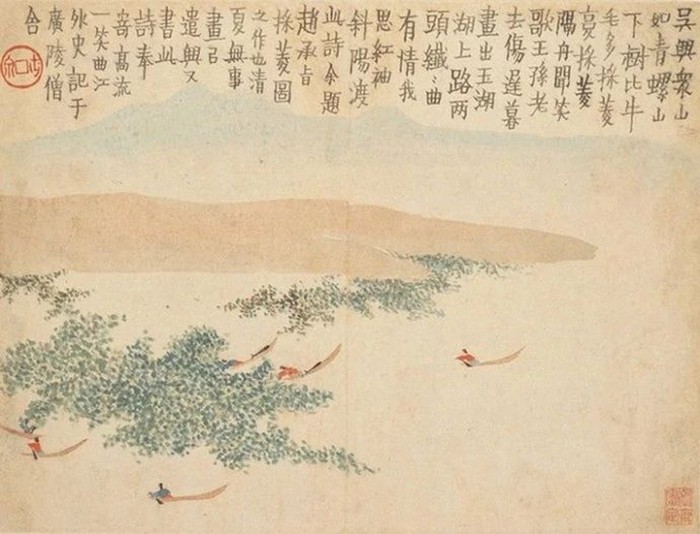 吳興衆山
如青螺山
下樹比牛
毛多採菱
复採菱
隔舟聞笑
歌王孫老
去傷遲暮
畫出玉湖
湖上路兩
頭纖〻曲
有情我
思紅袖
斜陽渡
此詩今題
趙承旨
採菱圖
之作也清
夏無事
畫
遣興又
書此
詩奉
寄高流
一笑曲江
外史記于
廣陵僧
舍